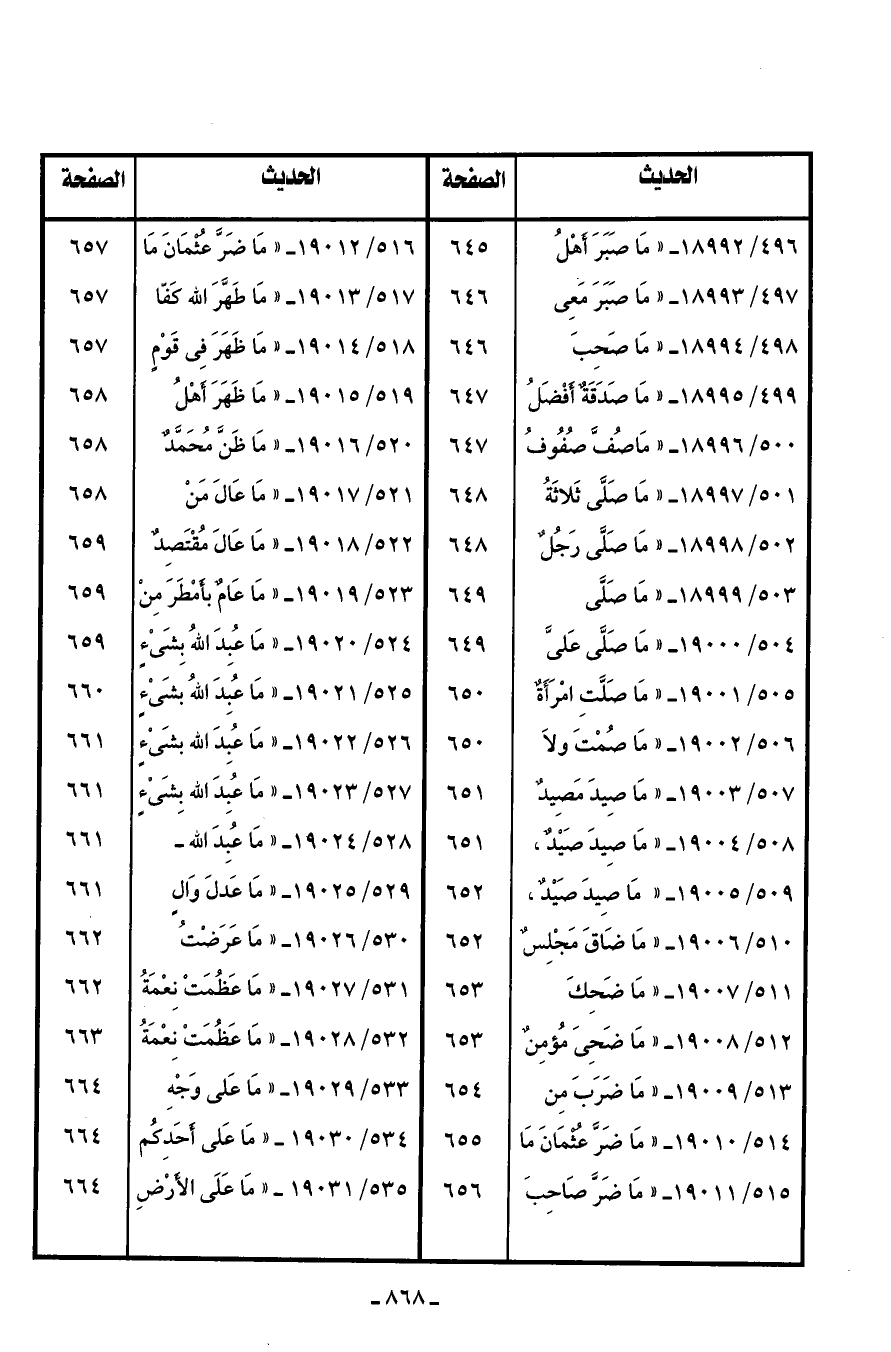 الحديث الصفحة الحديث الصفحة
٤٩٦/ ١٨٩٩٢ـ « مَا صَبَرَ أَهْلُ ٦٤٥ ٥١٦/ ١٩٠١٢ـ « مَا ضَرَّ عُثْمَانَ مَا ٦٥٧
٤٩٧/ ١٨٩٩٣ـ « مَا صَبَرَ مَعِى ٦٤٦ ٥١٧/ ١٩٠١٣ـ « مَا طَهَّرَ الله كَفّا ٦٥٧
٤٩٨/ ١٨٩٩٤ـ « مَا صَحِبَ ٦٤٦ ٥١٨/ ١٩٠١٤ـ « مَا ظَهَرَ فِى قَوْمٍ ٦٥٧
٤٩٩/ ١٨٩٩٥ـ « مَا صَدَقَةٌ أَفْضَلُ ٦٤٧ ٥١٩/ ١٩٠١٥ـ « مَا ظَهَرَ أَهْلُ ٦٥٨
٥٠٠/ ١٨٩٩٦ـ « مَاصُفَّ صُفُوفُ ٦٤٧ ٥٢٠/ ١٩٠١٦ـ « مَا ظَنَّ مُحَمَّدٌ ٦٥٨
٥٠١/ ١٨٩٩٧ـ « مَا صَلَّى ثَلاثَةُ ٦٤٨ ٥٢١/ ١٩٠١٧ـ « مَا عَالَ مَنْ ٦٥٨
٥٠٢/ ١٨٩٩٨ـ « مَا صَلَّى رَجُلٌ ٦٤٨ ٥٢٢/ ١٩٠١٨ـ « مَا عَالَ مُقْتَصِدٌ ٦٥٩
٥٠٣/ ١٨٩٩٩ـ « مَا صَلَّى ٦٤٩ ٥٢٣/ ١٩٠١٩ـ « مَا عَامٌ بِأَمْطَرَ مِنْ ٦٥٩
٥٠٤/ ١٩٠٠٠ـ « مَا صَلَّى عَلىَّ ٦٤٩ ٥٢٤/ ١٩٠٢٠ـ « مَا عُبِدَ اللهُ بِشَىْءٍ ٦٥٩
٥٠٥/ ١٩٠٠١ـ « مَا صَلَّتِ امْرَأَةٌ ٦٥٠ ٥٢٥/ ١٩٠٢١ـ « مَا عُبِدَ اللهُ بِشَىْءٍ ٦٦٠
٥٠٦/ ١٩٠٠٢ـ « مَا صُمْتَ ولاَ ٦٥٠ ٥٢٦/ ١٩٠٢٢ـ « مَا عُبِدَ الله بِشَىْءٍ ٦٦١
٥٠٧/ ١٩٠٠٣ـ « مَا صِيدَ مَصِيدٌ ٦٥١ ٥٢٧/ ١٩٠٢٣ـ « مَا عُبِدَ الله بِشَىْءٍ ٦٦١
٥٠٨/ ١٩٠٠٤ـ « مَا صِيدَ صَيْدٌ ، ٦٥١ ٥٢٨/ ١٩٠٢٤ـ « مَا عُبِدَ الله ـ ٦٦١
٥٠٩/ ١٩٠٠٥ـ « مَا صِيدَ صَيْدٌ ، ٦٥٢ ٥٢٩/ ١٩٠٢٥ـ « مَا عَدلَ وَالٍ ٦٦١
٥١٠/ ١٩٠٠٦ـ « مَا ضَاقَ مَجْلِسٌ ٦٥٢ ٥٣٠/ ١٩٠٢٦ـ « مَا عَرَضْتُ ٦٦٢
٥١١/ ١٩٠٠٧ـ « مَا ضَحِكَ ٦٥٣ ٥٣١/ ١٩٠٢٧ـ « مَا عَظُمَتْ نِعْمَةُ ٦٦٢
٥١٢/ ١٩٠٠٨ـ « مَا ضَحِىَ مُؤْمِنٌ ٦٥٣ ٥٣٢/ ١٩٠٢٨ـ « مَا عَظُمَتْ نِعْمَةُ ٦٦٣
٥١٣/ ١٩٠٠٩ـ « مَا ضَرَبَ مِن ٦٥٤ ٥٣٣/ ١٩٠٢٩ـ « مَا عَلى وَجْهِ ٦٦٤
٥١٤/ ١٩٠١٠ـ « مَا ضَرَّ عُثْمَانَ مَا ٦٥٥ ٥٣٤/ ١٩٠٣٠ ـ « مَا عَلى أَحَدِكُم ٦٦٤
٥١٥/ ١٩٠١١ـ « مَا ضَرَّ صَاحِبَ ٦٥٦ ٥٣٥/ ١٩٠٣١ ـ « مَا عَلَى الأَرْضِ ٦٦٤
ـ ٨٦٨ ـ